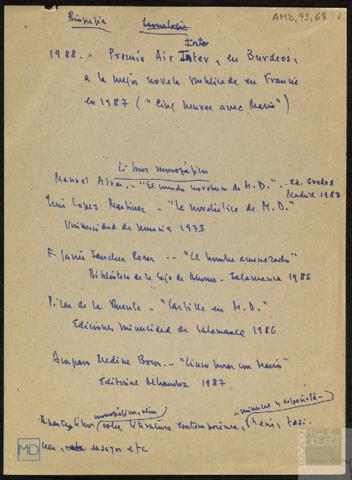 AMD, 93, 68
Biografía Cronología
Inter
1988.- Premio Air Inter, en Burdeos,
a la mejor novela publicada en Francia
en 1987 ("Cinq heures avec Mario")
Libros monográficos
Manuel Alvar.- "El mundo novelesco de M.D.".- Ed. Gredos
Madrid 1987
Luis Lopez Martinez - "La novelística de M.D."
Universidad de Murcia 1973
F. Javier Sanchez Perez .- "El hombre amenazado"
Biblioteca de la Caja de Ahorros. Salamanca 1985
Pilar de la Puente.- "Castilla en M.D."
Ediciones Universidad de Salamanca 1986
Amparo Medina Bocos.- "Cinco horas con Mario"
Editorial Alhambra 1987
Aparte libros sobre literatura contemporánea,
ensayos etc
MD